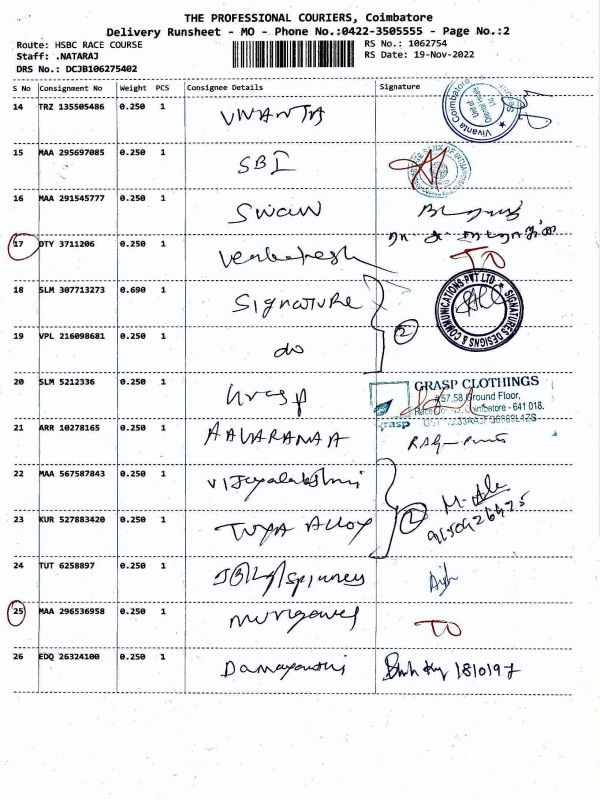 THE PROFESSIONAL COURIERS, Coimbatore
Delivery Runsheet - MO - Phone No.:0422-3505555 - Page No.:2
Route: HSBC RACE COURSE RS No.: 1062754
Staff: .NATARAJ RS Date: 19-Nov-2022
DRS No.: DCJB106275402
S No Consignment No Weight PCS Consignee Details Signature
14 TRZ 135505486 0.250 1 VIVANTA
Vivanta Coimbatore
15 MAA 295697085 0.250 1 SBI
16 MAA 291545777 0.250 1 Swan
17 DTY 3711206 0.250 1 Venkatesh TO
18 SLM 307713273 0.690 1 Signature
SIGNATURES DESIGNS & COMMUNICATIONS PVT LTD
19 VPL 216098681 0.250 1 do 2
20 SLM 5212336 0.250 1 Grasp
GRASP CLOTHINGS
#57,58, Ground Floor,
Coimbatore - 641 018.
grasp
21 ARR 10278165 0.250 1 AAVARANAA
22 MAA 567587843 0.250 1 Vijayalakshmi
23 KUR 527883420 0.250 1 TUYA ALLOY 2
24 TUT 6258897 0.250 1
25 MAA 296536958 0.250 1 Murugavel TO
26 EDQ 26324100 0.250 1 Damayanthi